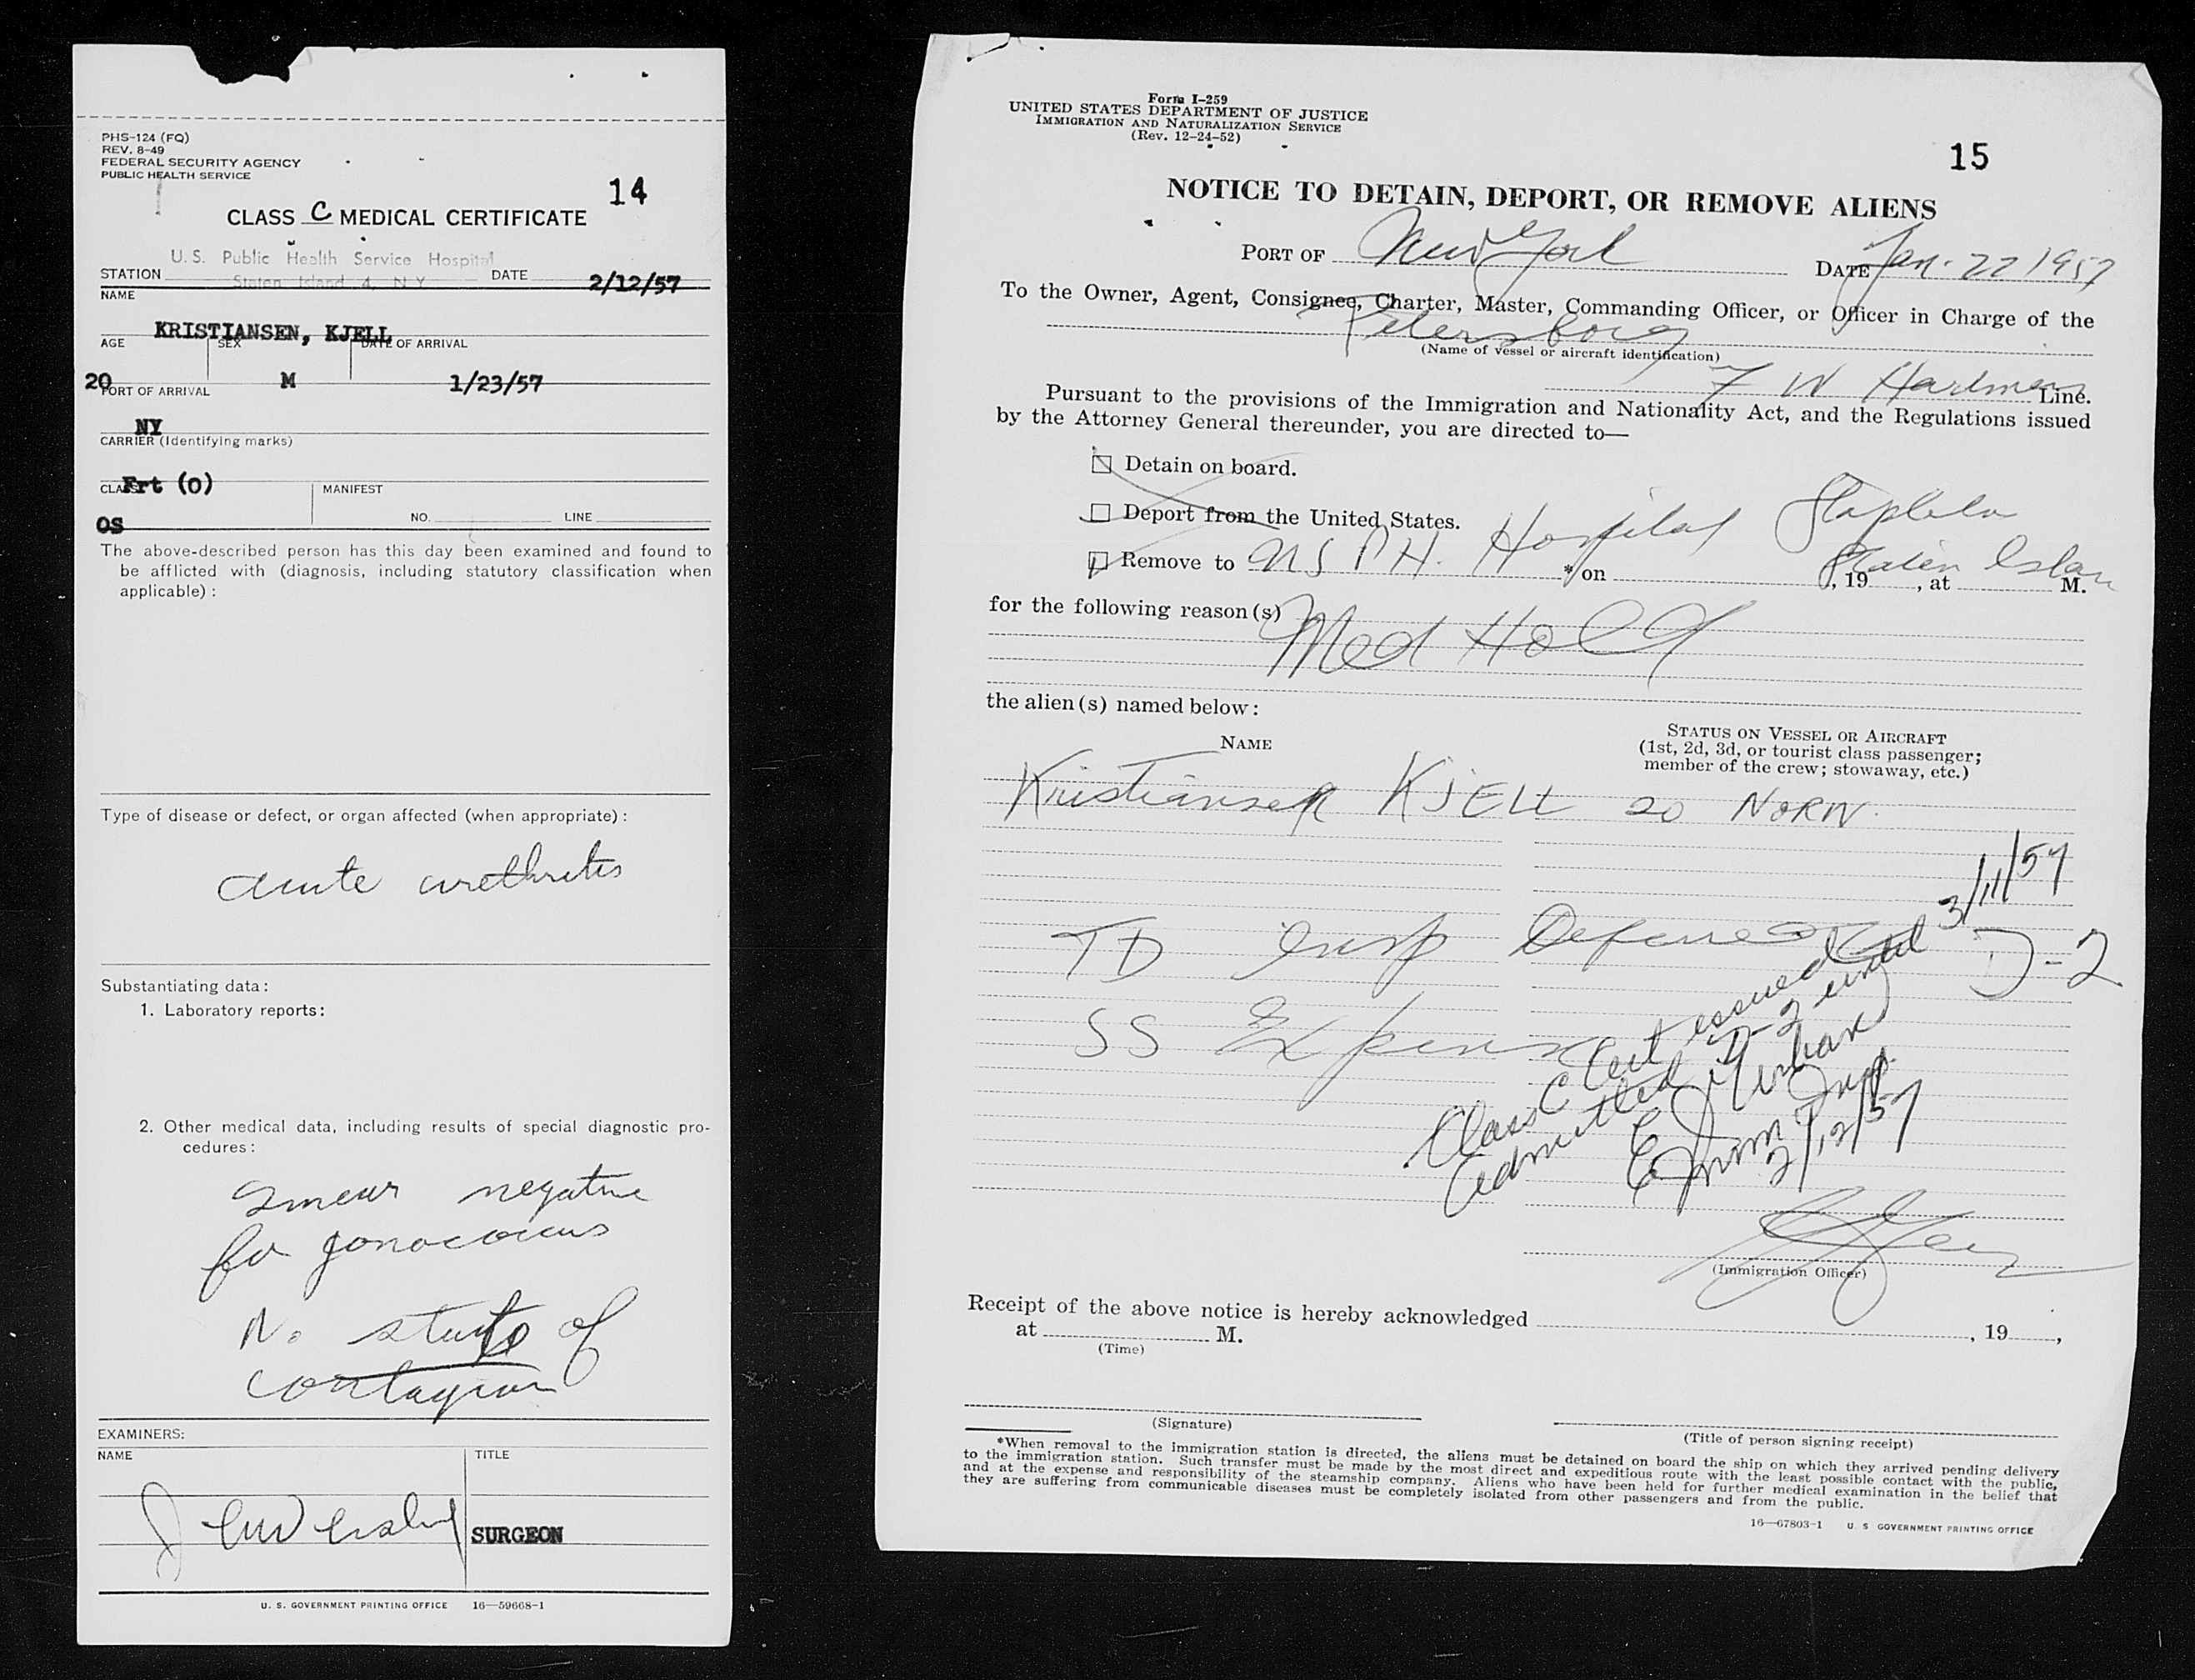 PHS-124 (FQ)
REV. 8-49
FEDERAL SECURITY AGENCY
PUBLIC HEALTH SERVICE
14
CLASS C MEDICAL CERTIFICATE
U.S. Public Health Service Hospital
STATION Staten Island 4, N Y DATE 2/12/57
NAME
KRISTIANSEN, KJELL
AGE SEX DATE OF ARRIVAL
20 M 1/23/57
PORT OF ARRIVAL
NY
CARRIER (Identifying marks)
Frt (O)
CLASS MANIFEST
OS NO. LINE
The above-described person has this day been examined and found to
be afflicted with (diagnosis, including statutory classification when
applicable) :
Type of disease or defect, or organ affected (when appropriate) :
acute urethritis
Substantiating data :
1. Laboratory reports :
2. Other medical data, including results of special diagnostic pro-
cedures :
Smear negative
for gonococcus
No state of
contagion
EXAMINERS:
NAME TITLE
SURGEON
U. S. GOVERNMENT PRINTING OFFICE 16—59668-1
Form I-259
UNITED STATES DEPARTMENT OF JUSTICE
IMMIGRATION AND NATURALIZATION SERVICE
(Rev. 12-24-52)
15
NOTICE TO DETAIN, DEPORT, OR REMOVE ALIENS
PORT OF New York DATE Jan. 22 1957
To the Owner, Agent, Consignee, Charter, Master, Commanding Officer, or Officer in Charge of the
Petersborg
(Name of vessel or aircraft identification)
F W Hartman Line.
Pursuant to the provisions of the Immigration and Nationality Act, and the Regulations issued
by the Attorney General thereunder, you are directed to—
Detain on board.
Deport from the United States.
Remove to USPH. Hospital Stapleton
Staten Island
* on , 19 , at M.
for the following reason(s)
Med Hold
the alien(s) named below :
NAME STATUS ON VESSEL OR AIRCRAFT
(1st, 2d, 3d, or tourist class passenger;
member of the crew; stowaway, etc.)
Kristiansen KJELL 20 NORW.
TD Insp Deferred D-2
SS Expense
Class C Cert issued
admitted D-2 until 3/11/57
E J Urban
Imm Insp.
2/12/57
(Immigration Officer)
Receipt of the above notice is hereby acknowledged , 19 ,
at M.
(Time)
(Signature)
(Title of person signing receipt)
*When removal to the immigration station is directed, the aliens must be detained on board the ship on which they arrived pending delivery
to the immigration station. Such transfer must be made by the most direct and expeditious route with the least possible contact with the public,
and at the expense and responsibility of the steamship company. Aliens who have been held for further medical examination in the belief that
they are suffering from communicable diseases must be completely isolated from other passengers and from the public.
16—67803-1 U. S GOVERNMENT PRINTING OFFICE